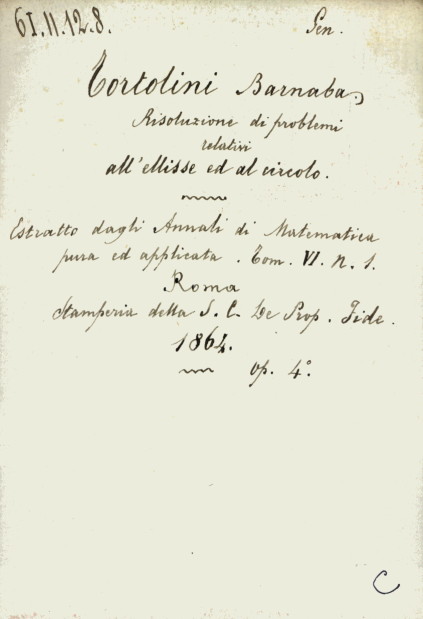 61.11.12.8. Gen.
Tortolini Barnaba.
Risoluzione di problemi
relativi
all'ellisse ed al circolo.
Estratto dagli Annali di Matematica
pura ed applicata. Tom. VI. N. 1.
Roma
Stamperia della S. C. De Prop. Fide.
1864.
op. 4°.
C